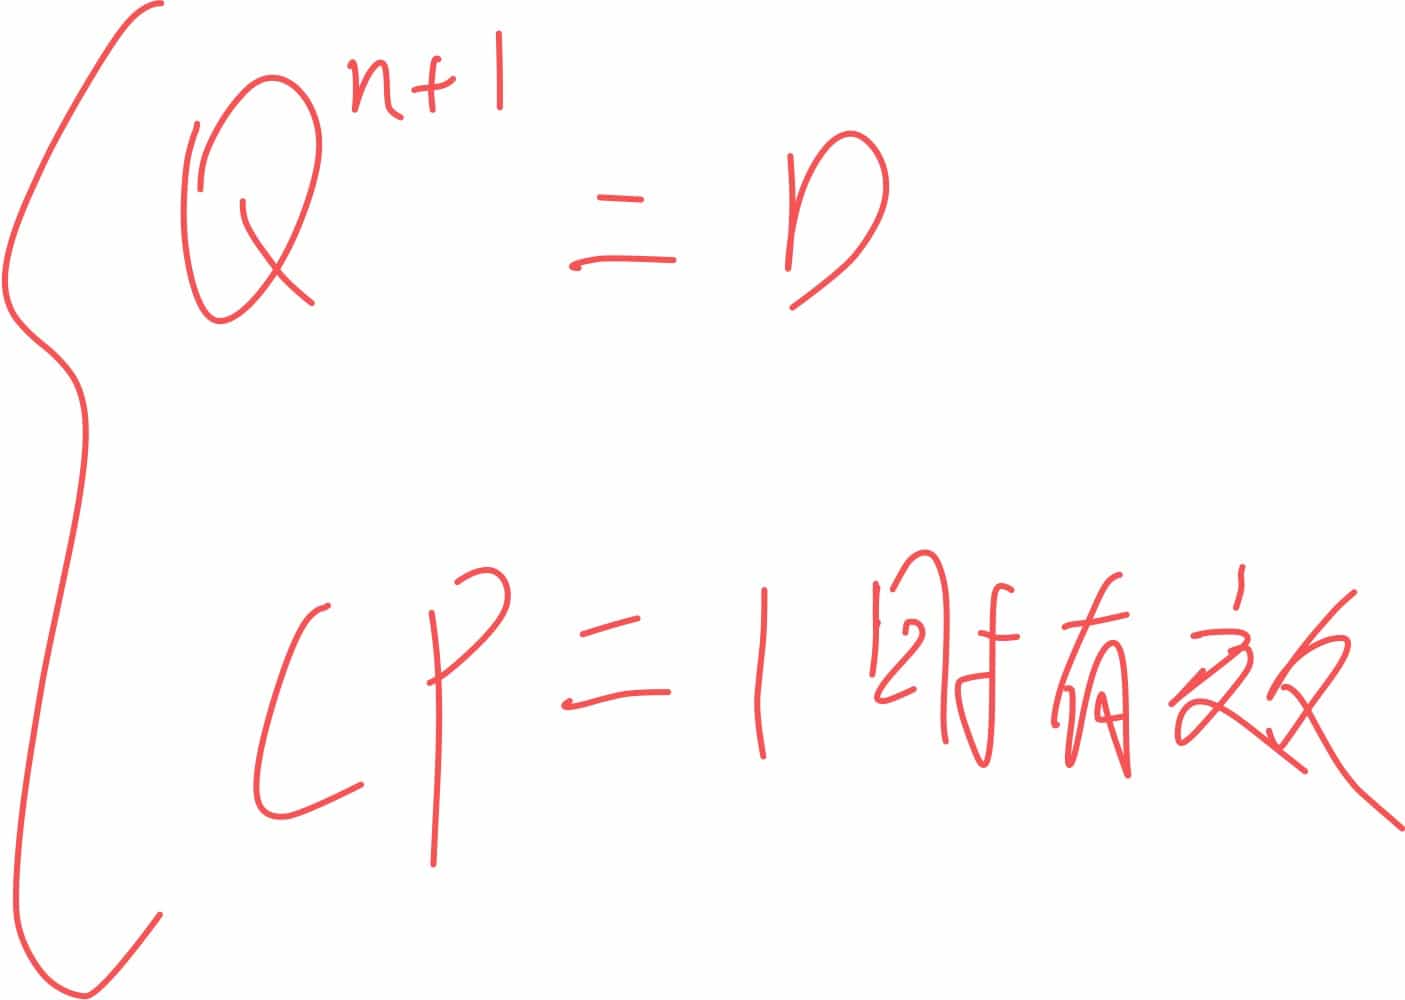 Qⁿ⁺¹ = D
CP = 1 时有效